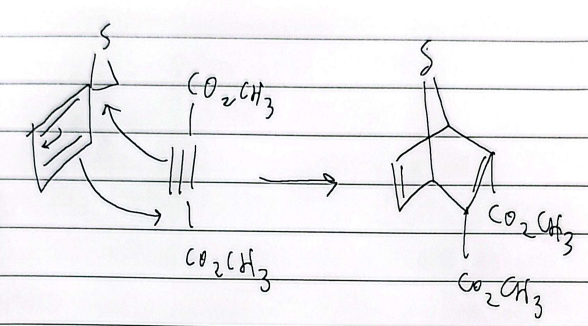 S
CO2CH3
CO2CH3
S
CO2CH3
CO2CH3